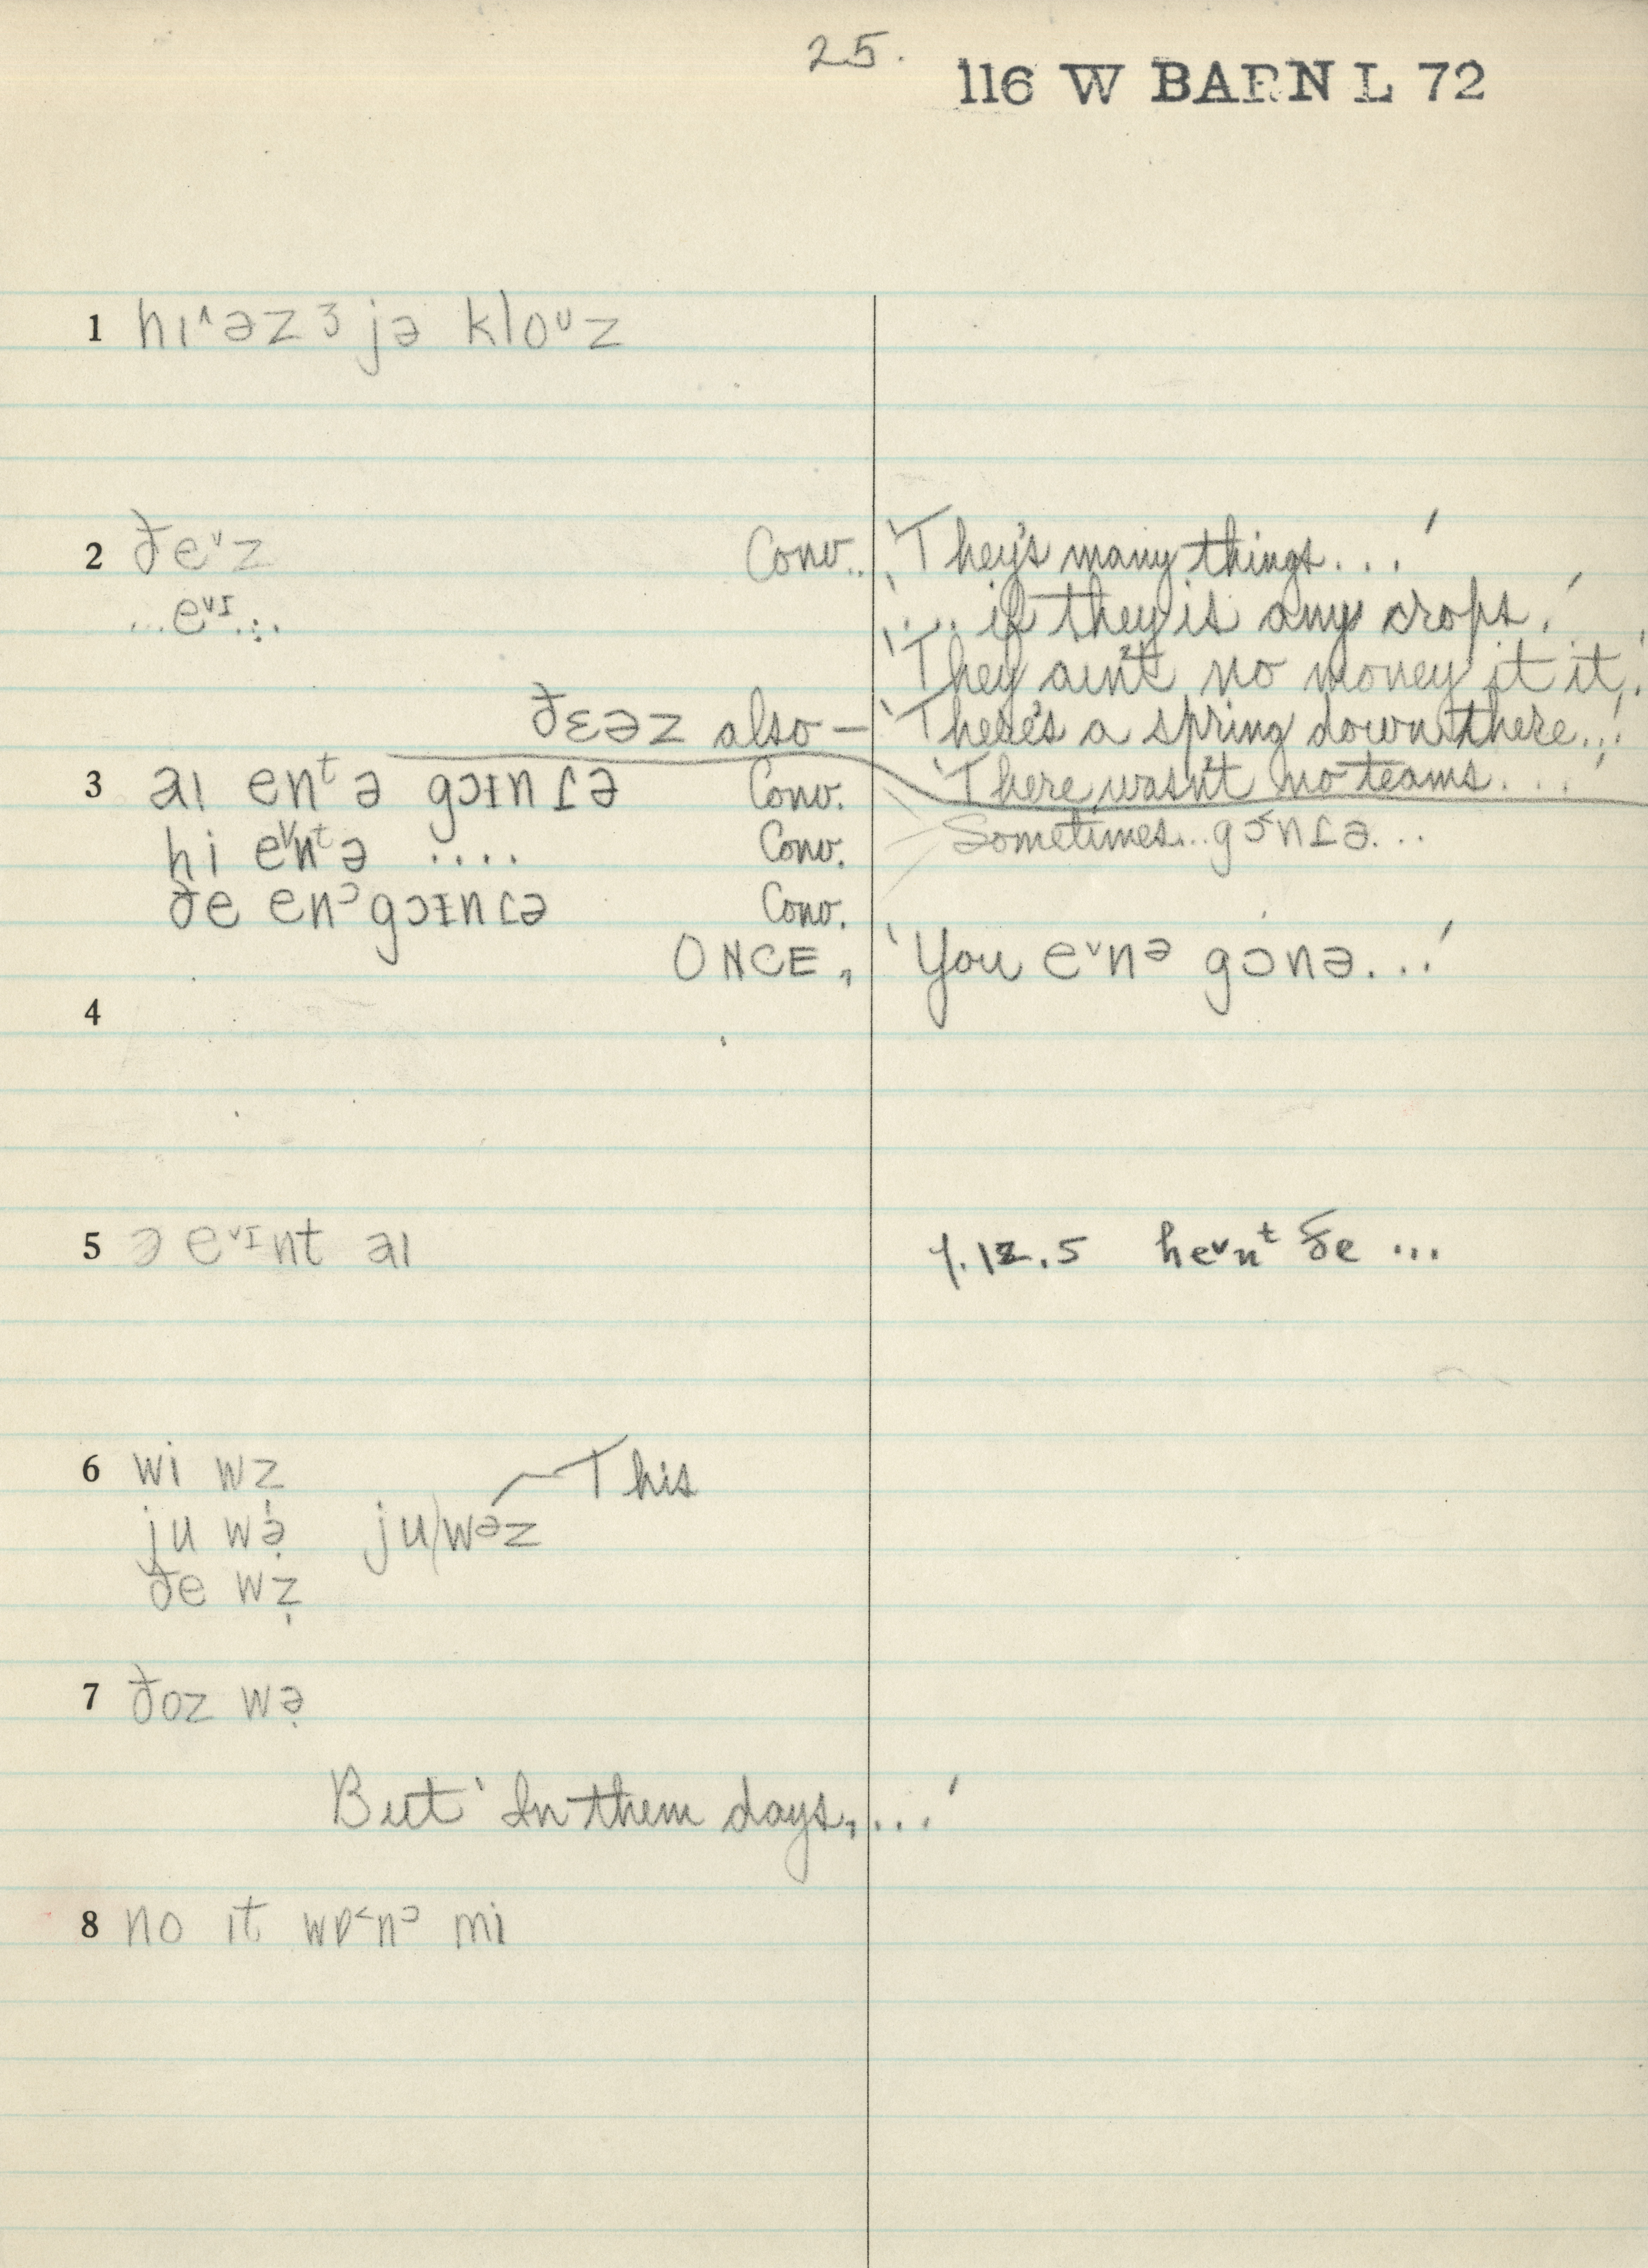 25.
116 W BARN L 72
1 hɪ^əz ʒ jə kloᵘz
2 ðeᵛz Conv.. 'They's many things...'
...eᵛᴵ... '... if they is any crops.'
'They ain't no money it it.'
ðɛəz also — 'There's a spring down there...'
'There wasn't no teams...'
3 aɪ enᵗ ə gɔɪn ɾə Conv.
Sometimes...gɔnɾə...
hi eᵛnᵗə .... Conv.
ðe enᵓ gɔɪnɾə Conv.
ONCE, 'You eᵛnᵊ gɔnə...'
4
5 ə eᵛᴵnt aɪ 1.12.5 heᵛnᵗ ðe ...
6 wi wz This
ju wə̣ ju/wəz
ðe wẓ
7 ðoz wə̣
But 'In them days,...'
8 no ɪt wɒ˂nᵓ mi